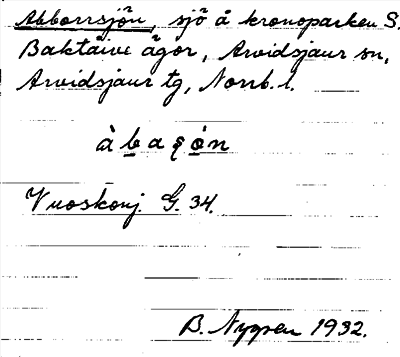 Abborrsjön, sjö å kronoparken S.
Baktåive ägor, Arvidsjaur sn,
Arvidsjaur tg, Norrb. l.
àbaʂón
Vuoskonj. G. 34.
B. Nygren 1932.